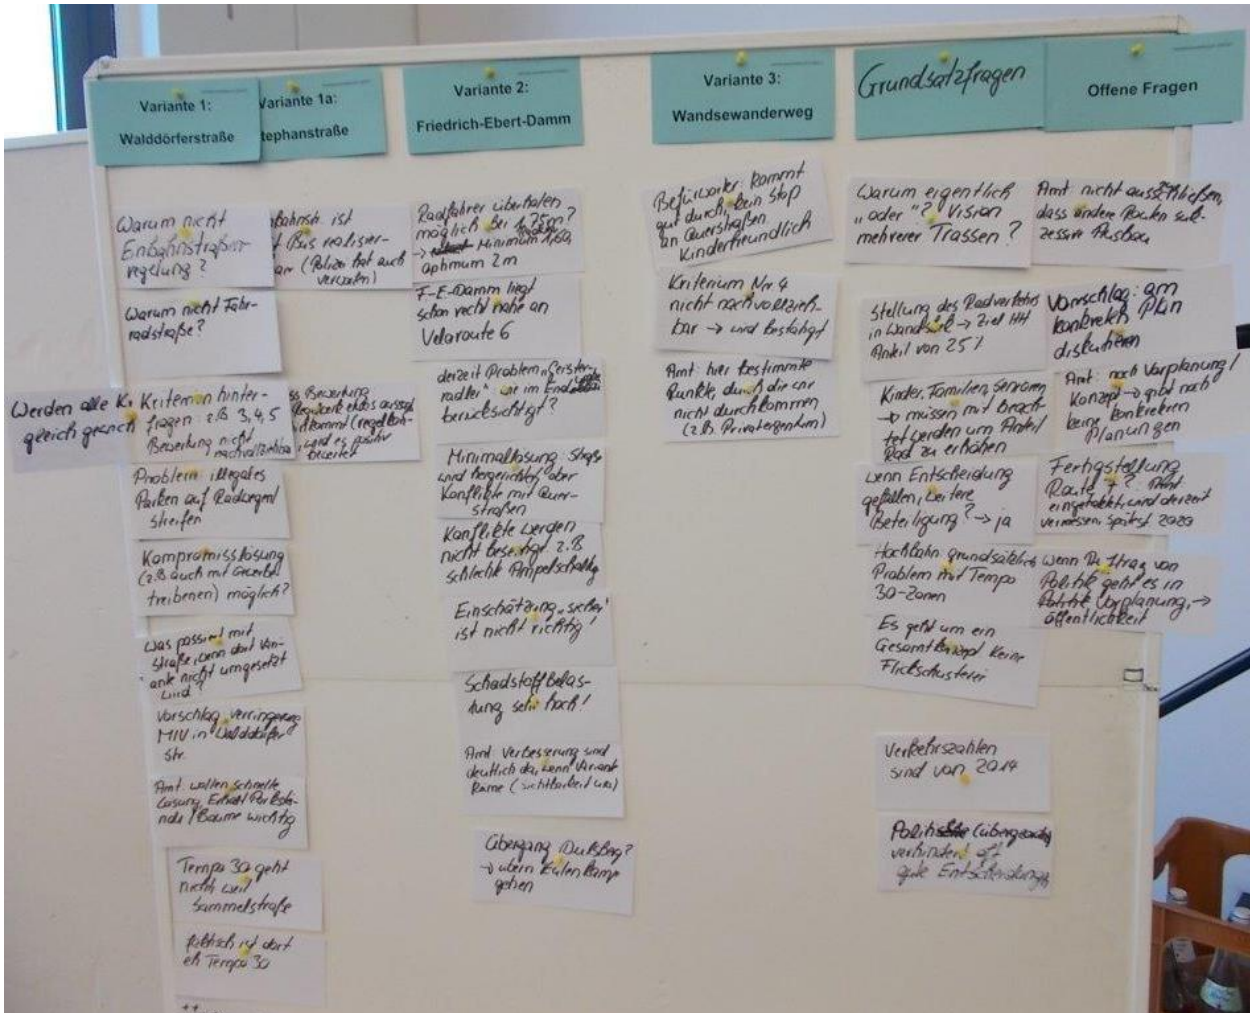 Variante 1:
Walddörferstraße
Warum nicht
Einbahnstraßen
regelung?
Warum nicht Fahr-
radstraße?
Werden alle K
gleich
Kriterien hinter-
fragen z.B 3, 4, 5
Bewertung nicht
nachvollziehbar
Problem: illegales
Parken auf
streifen
Kompromisslösung
(z.B auch mit
treibenen) möglich?
Was passiert mit
Straße, wenn dort Vari-
ante nicht umgesetzt
wird?
Vorschlag verringerung
MIV in Walddörfer
Str.
Amt wollen schnelle
Lösung, Erhalt Parkstä-
nde / Bäume wichtig
Tempo 30 geht
nicht weil
Sammelstraße
faktisch ist dort
eh Tempo 30
Variante 1a:
tephanstraße
ist
Bus realisier-
(Polizei hat auch
Bewertung
wird es positiv
bewertet
Variante 2:
Friedrich-Ebert-Damm
Radfahrer überholen
möglich bei 1,75m?
→ Minimum 1,60,
optimum 2m
F-E-Damm liegt
schon recht nahe an
Veloroute 6
derzeit Problem „Geister-
radler" im
berücksichtigt?
Minimallösung Straße
wird hergerichtet, aber
Konflikte mit Quer-
straßen
Konflikte werden
nicht beseitigt z.B
schlechte Ampelschaltg
Einschätzung „sicher"
ist nicht richtig!
Schadstoffbelas-
tung sehr hoch!
Amt: Verbesserung sind
deutlich da, wenn Variante
käme (Sichtbarkeit usw)
Übergang Dulsberg?
→ übern Eulenkamp
gehen
Variante 3:
Wandsewanderweg
Befürworter: Kommt
gut durch, kein Stop
an Querstraßen
Kinderfreundlich
Kriterium Nr 4
nicht nachvollzieh-
bar → wird bestätigt
Amt: hier bestimmte
Punkte, durch die wir
nicht durchkommen
(z.B. Privateigentum)
Grundsatzfragen
Warum eigentlich
„oder"? Vision
mehrerer Trassen?
Stellung des Radverkehrs
in Wandsbek → Ziel HH
Anteil von 25%
Kinder, Familien, Senioren
→ müssen mit Beach-
tet werden um Anteil
Rad zu erhöhen
wenn Entscheidung
gefallen, weitere
Beteiligung? → ja
Hochbahn: grundsätzlich
Problem mit Tempo
30-Zonen
Es geht um ein
Gesamtkonzept keine
Flickschusterei
Verkehrszahlen
sind von 2014
verhindert oft
gute Entscheidungen
Offene Fragen
Amt: nicht ausschließen,
dass andere Routen suk-
zessive Ausbau
Vorschlag: am
konkreten Plan
diskutieren
Amt: noch Vorplanung/
Konzept → gibt noch
keine konkreten
Planungen
Fertigstellung
Route 7? Amt:
eingetaktet, wird derzeit
vermessen, spätest 2020
wenn Auftrag von
Politik geht es in
Vorplanung, →
Öffentlichkeit